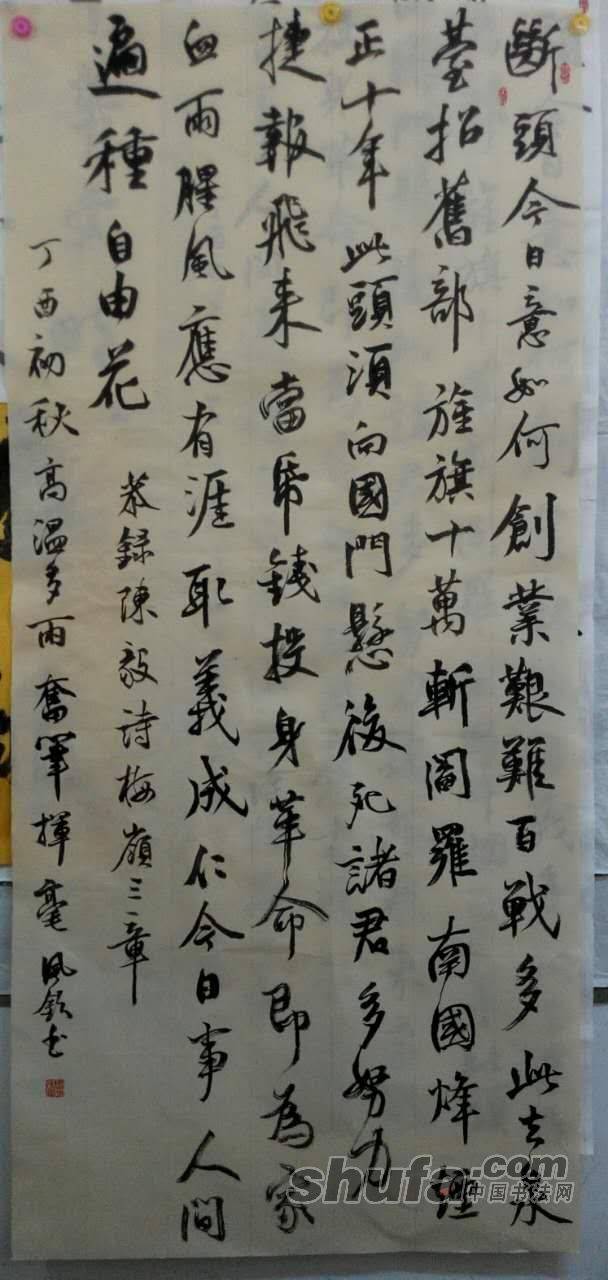 斷頭今日意如何創業艱難百戰多此去泉
臺招舊部旌旗十萬斬閻羅南國烽煙
正十年此頭須向國門懸後死諸君多努力
捷報飛來當帋錢投身革命即為家
血雨腥風應有涯取義成仁今日事人間
遍種自由花
恭錄陳毅詩梅嶺三章
丁酉初秋高溫多雨奮筆揮毫风欽书
shufa.com
中国书法网